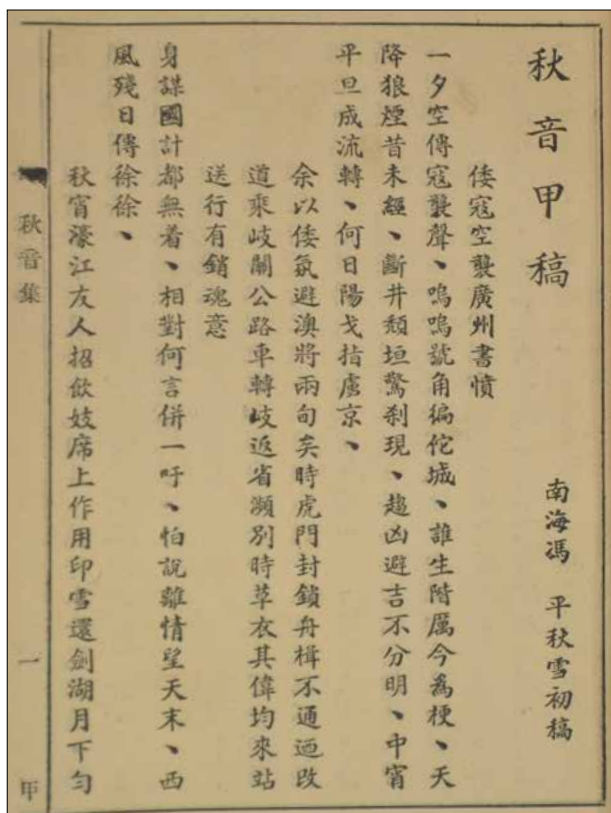 秋音甲稿
南海馮　平秋雪初稿
倭寇空襲廣州書憤
一夕空傳寇襲聲、嗚嗚號角徧佗城、誰生階厲今為梗、天
降狼煙昔未經、斷井頹垣驚刹現、趨凶避吉不分明、中宵
平旦成流轉、何日陽戈指虜京、
余以倭氛避澳將兩旬矣時虎門封鎖舟楫不通迺改
道乘岐關公路車轉岐返省瀕別時草衣其偉均來站
送行有銷魂意
身謀國計都無着、相對何言併一吁、怕說離情望天末、西
風殘日傳徐徐、
秋宵濠江友人招飲妓席上作用印雪還劍湖月下勻
秋音集
一
甲